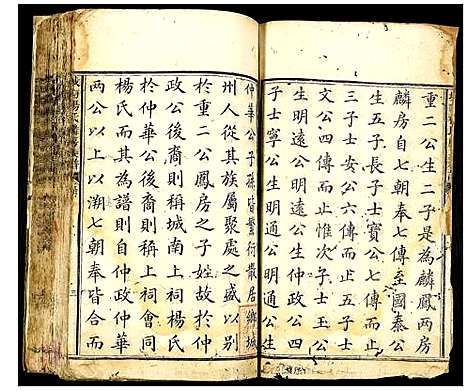 重二公生二子是為麟鳳兩房
麟房自七朝奉七傳至國泰公
生五子長子士寶公七傳而止
次子士安公六傳而止五子士
文公四傳而止惟次子士玉公
生明遠公明遠公生仲政公次
生明通公明通公生
仲華公子孫皆繁衍散居鄉城
州人從其族屬聚處之盛以別
於重二公鳳房之子姓故於仲
政公後裔則稱城南上祠楊氏
於仲華公後裔則稱上祠會同
楊氏而其為譜則自仲政仲華
兩公以上溯七朝奉皆合而